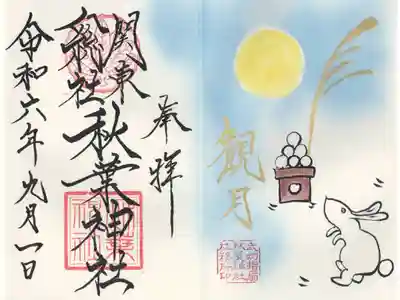 奉拝
関東
総社
秋葉神社
令和六年九月一日
観月